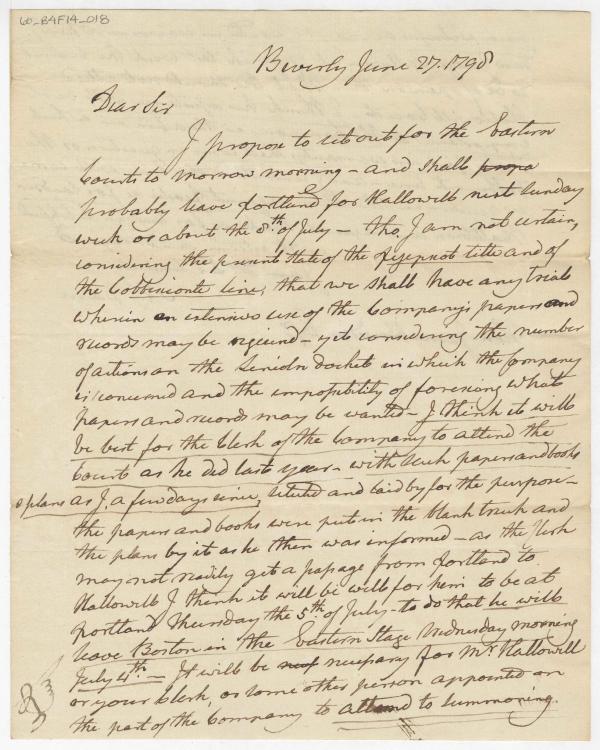 60_B4F14_018
Beverly June 27. 1798
Dear Sir
I propose to set out for the Eastern
Courts to morrow morning – and shall propo
probably leave Portland for Hallowell next Sunday
week or about the 8.th of July – tho, I am not certain,
considering the present state of the title and of
the Cobbisconte line, that we shall have any trials
wherein an extensive use of the Company's papers and
records may be required – yet considering the number
of actions on the Lincoln docket in which the Company
is concerned and the impossibility of foreseeing what
papers and records may be wanted – I think it will
be best for the Clerk of the Company to attend the
Courts as he did last year – with such papers and books
& plans as I, a few days since, selected and laid by for the purpose –
the papers and books were put in the blank trunk and
the plans by it as he then was informed – as the Clerk
may not readily get a passage from Portland to
Hallowell I think it will be well for him to be at
Portland Thursday the 5.th of July – to do that he will
leave Boston in the Eastern Stage Wednesday morning
July 4.th – It will be necessary for Mr Hallowell
or your Clerk, or some other person appointed on
the part of the Company to attend to summoning